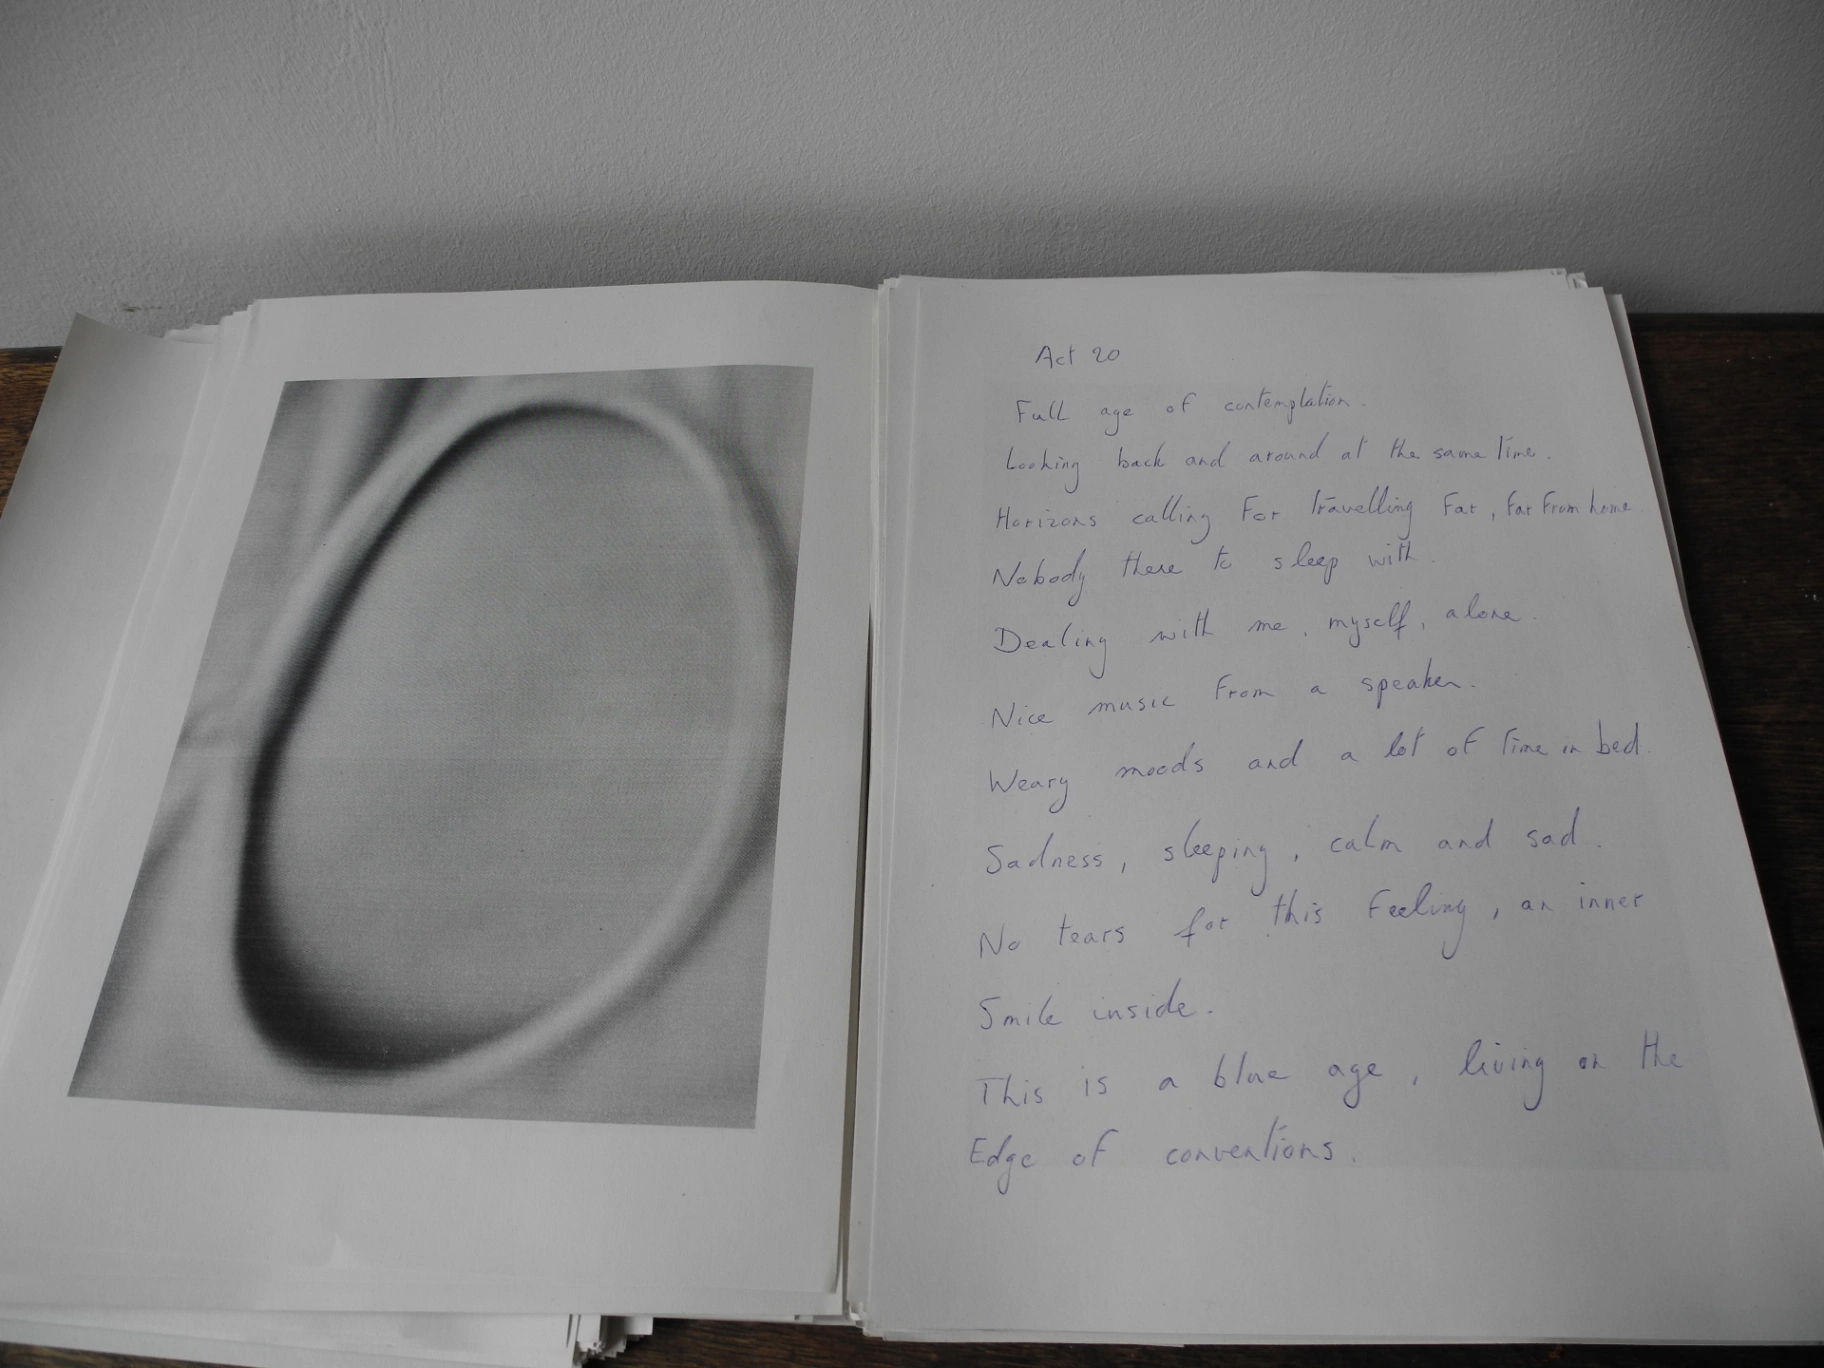 Act 20
Full age of contemplation.
Looking back and around at the same time.
Horizons calling for travelling far, far from home
Nobody there to sleep with.
Dealing with me, myself, alone.
Nice music from a speaker.
Weary moods and a lot of time in bed.
Sadness, sleeping, calm and sad.
No tears for this feeling, an inner
Smile inside.
This is a blue age, living on the
Edge of conventions.